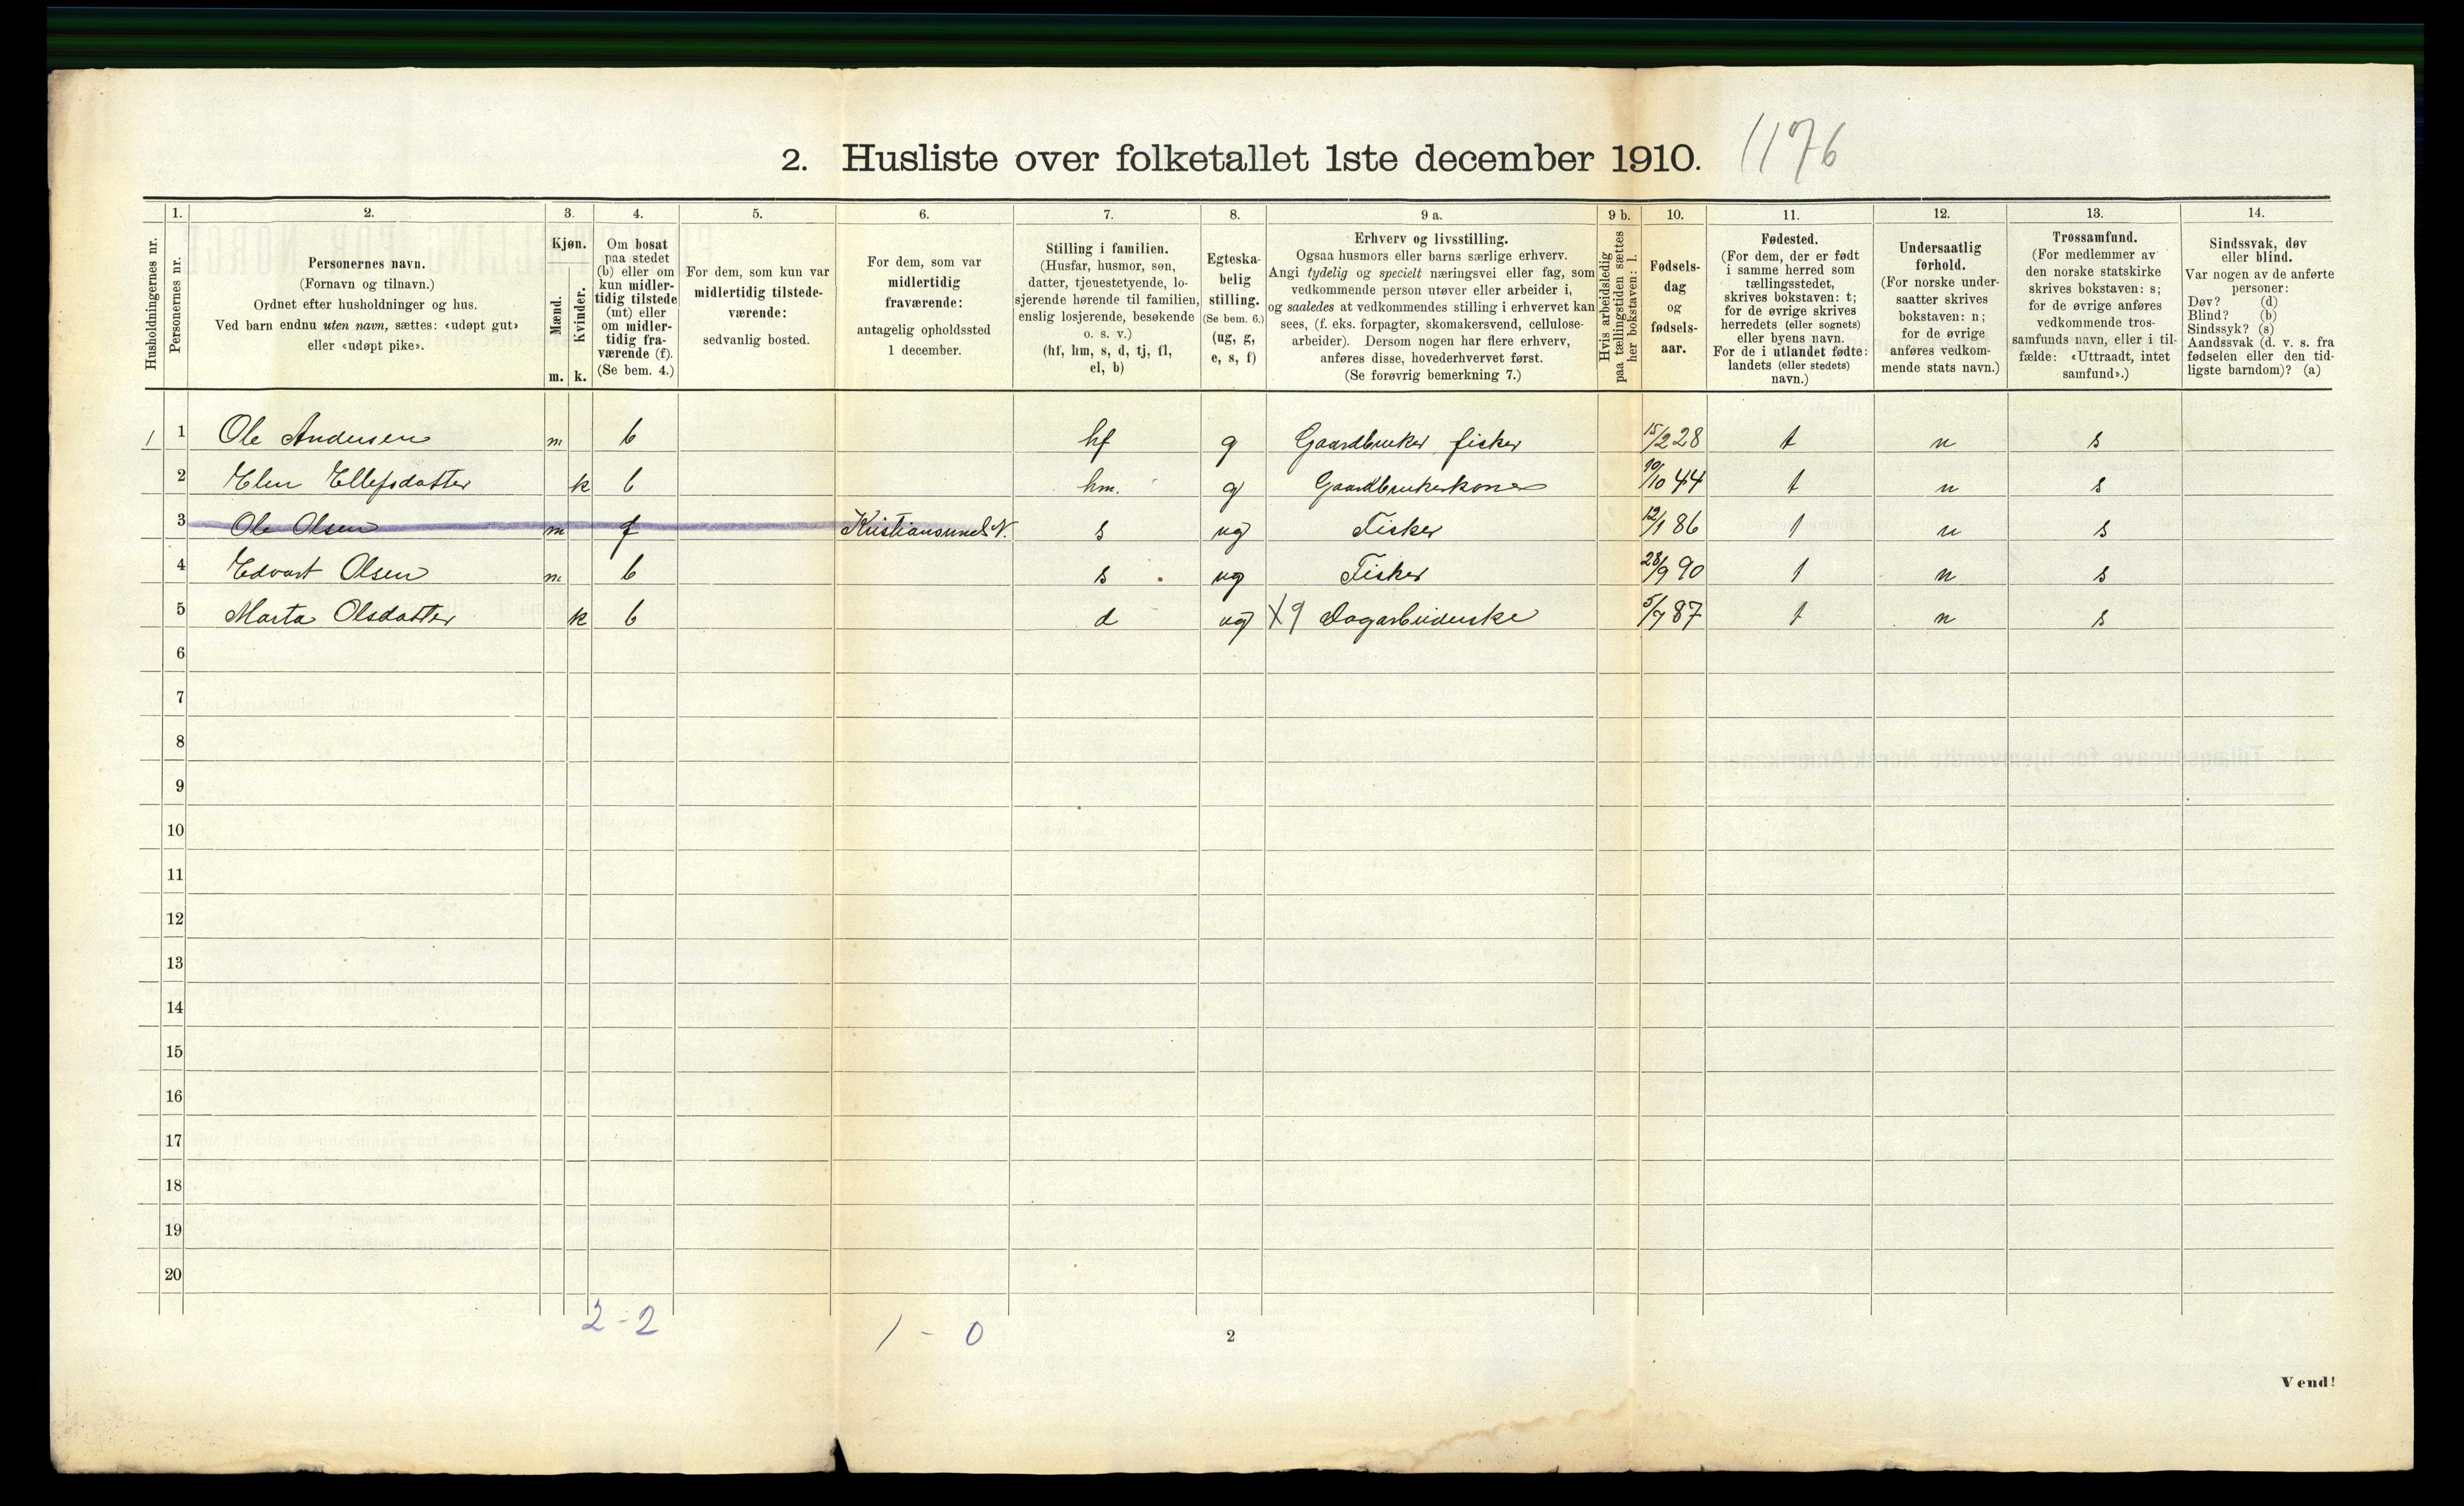 2. Husliste over folketallet 1ste december 1910. 1176
Husholdningernes nr.
1.
Personernes nr.
2.
Personernes navn.
(Fornavn og tilnavn.)
Ordnet efter husholdninger og hus.
Ved barn endnu uten navn, sættes: «udøpt gut»
eller «udøpt pike».
3.
Kjøn.
Mænd.
Kvinder.
m. k.
4.
Om bosat
paa stedet
(b) eller om
kun midler-
tidig tilstede
(mt) eller
om midler-
tidig fra-
værende (f).
(Se bem. 4.)
5.
For dem, som kun var
midlertidig tilstede-
værende:
sedvanlig bosted.
6.
For dem, som var
midlertidig
fraværende:
antagelig opholdssted
1 december.
7.
Stilling i familien.
(Husfar, husmor, søn,
datter, tjenestetyende, lo-
sjerende hørende til familien,
enslig losjerende, besøkende
o. s. v.)
(hf, hm, s, d, tj, fl,
el, b)
8.
Egteska-
belig
stilling.
(Se bem. 6.)
(ug, g,
e, s, f)
9 a.
Erhverv og livsstilling.
Ogsaa husmors eller barns særlige erhverv.
Angi tydelig og specielt næringsvei eller fag, som
vedkommende person utøver eller arbeider i,
og saaledes at vedkommendes stilling i erhvervet kan
sees, (f. eks. forpagter, skomakersvend, cellulose-
arbeider). Dersom nogen har flere erhverv,
anføres disse, hovederhvervet først.
(Se forøvrig bemerkning 7.)
9 b.
Hvis arbeidsledig
paa tællingstiden sættes
her bokstaven: l.
10.
Fødsels-
dag
og
fødsels-
aar.
11.
Fødested.
(For dem, der er født
i samme herred som
tællingsstedet,
skrives bokstaven: t;
for de øvrige skrives
herredets (eller sognets)
eller byens navn.
For de i utlandet fødte:
landets (eller stedets)
navn.)
12.
Undersaatlig
forhold.
(For norske under-
saatter skrives
bokstaven: n;
for de øvrige
anføres vedkom-
mende stats navn.)
13.
Trossamfund.
(For medlemmer av
den norske statskirke
skrives bokstaven: s;
for de øvrige anføres
vedkommende tros-
samfunds navn, eller i til-
fælde: «Uttraadt, intet
samfund».)
14.
Sindssvak, døv
eller blind.
Var nogen av de anførte
personer:
Døv? (d)
Blind? (b)
Sindssyk? (s)
Aandssvak (d. v. s. fra
fødselen eller den tid-
ligste barndom)? (a)
1 1 Ole Andersen m b hf g Gaardbruker, fisker 15/2 28 t n s
2 Elen Ellefsdatter k b hm. g Gaardbrukerkone 10/10 44 t n s
3 Ole Olsen m f Kristiansund N. s ug Fisker 12/1 86 t n s
4 Edvart Olsen m b s ug Fisker 28/9 90 t n s
5 Marta Olsdatter k b d ug X9 Dagarbeiderske 5/7 87 t n s
6
7
8
9
10
11
12
13
14
15
16
17
18
19
20
2-2 1-0
2
Vend!